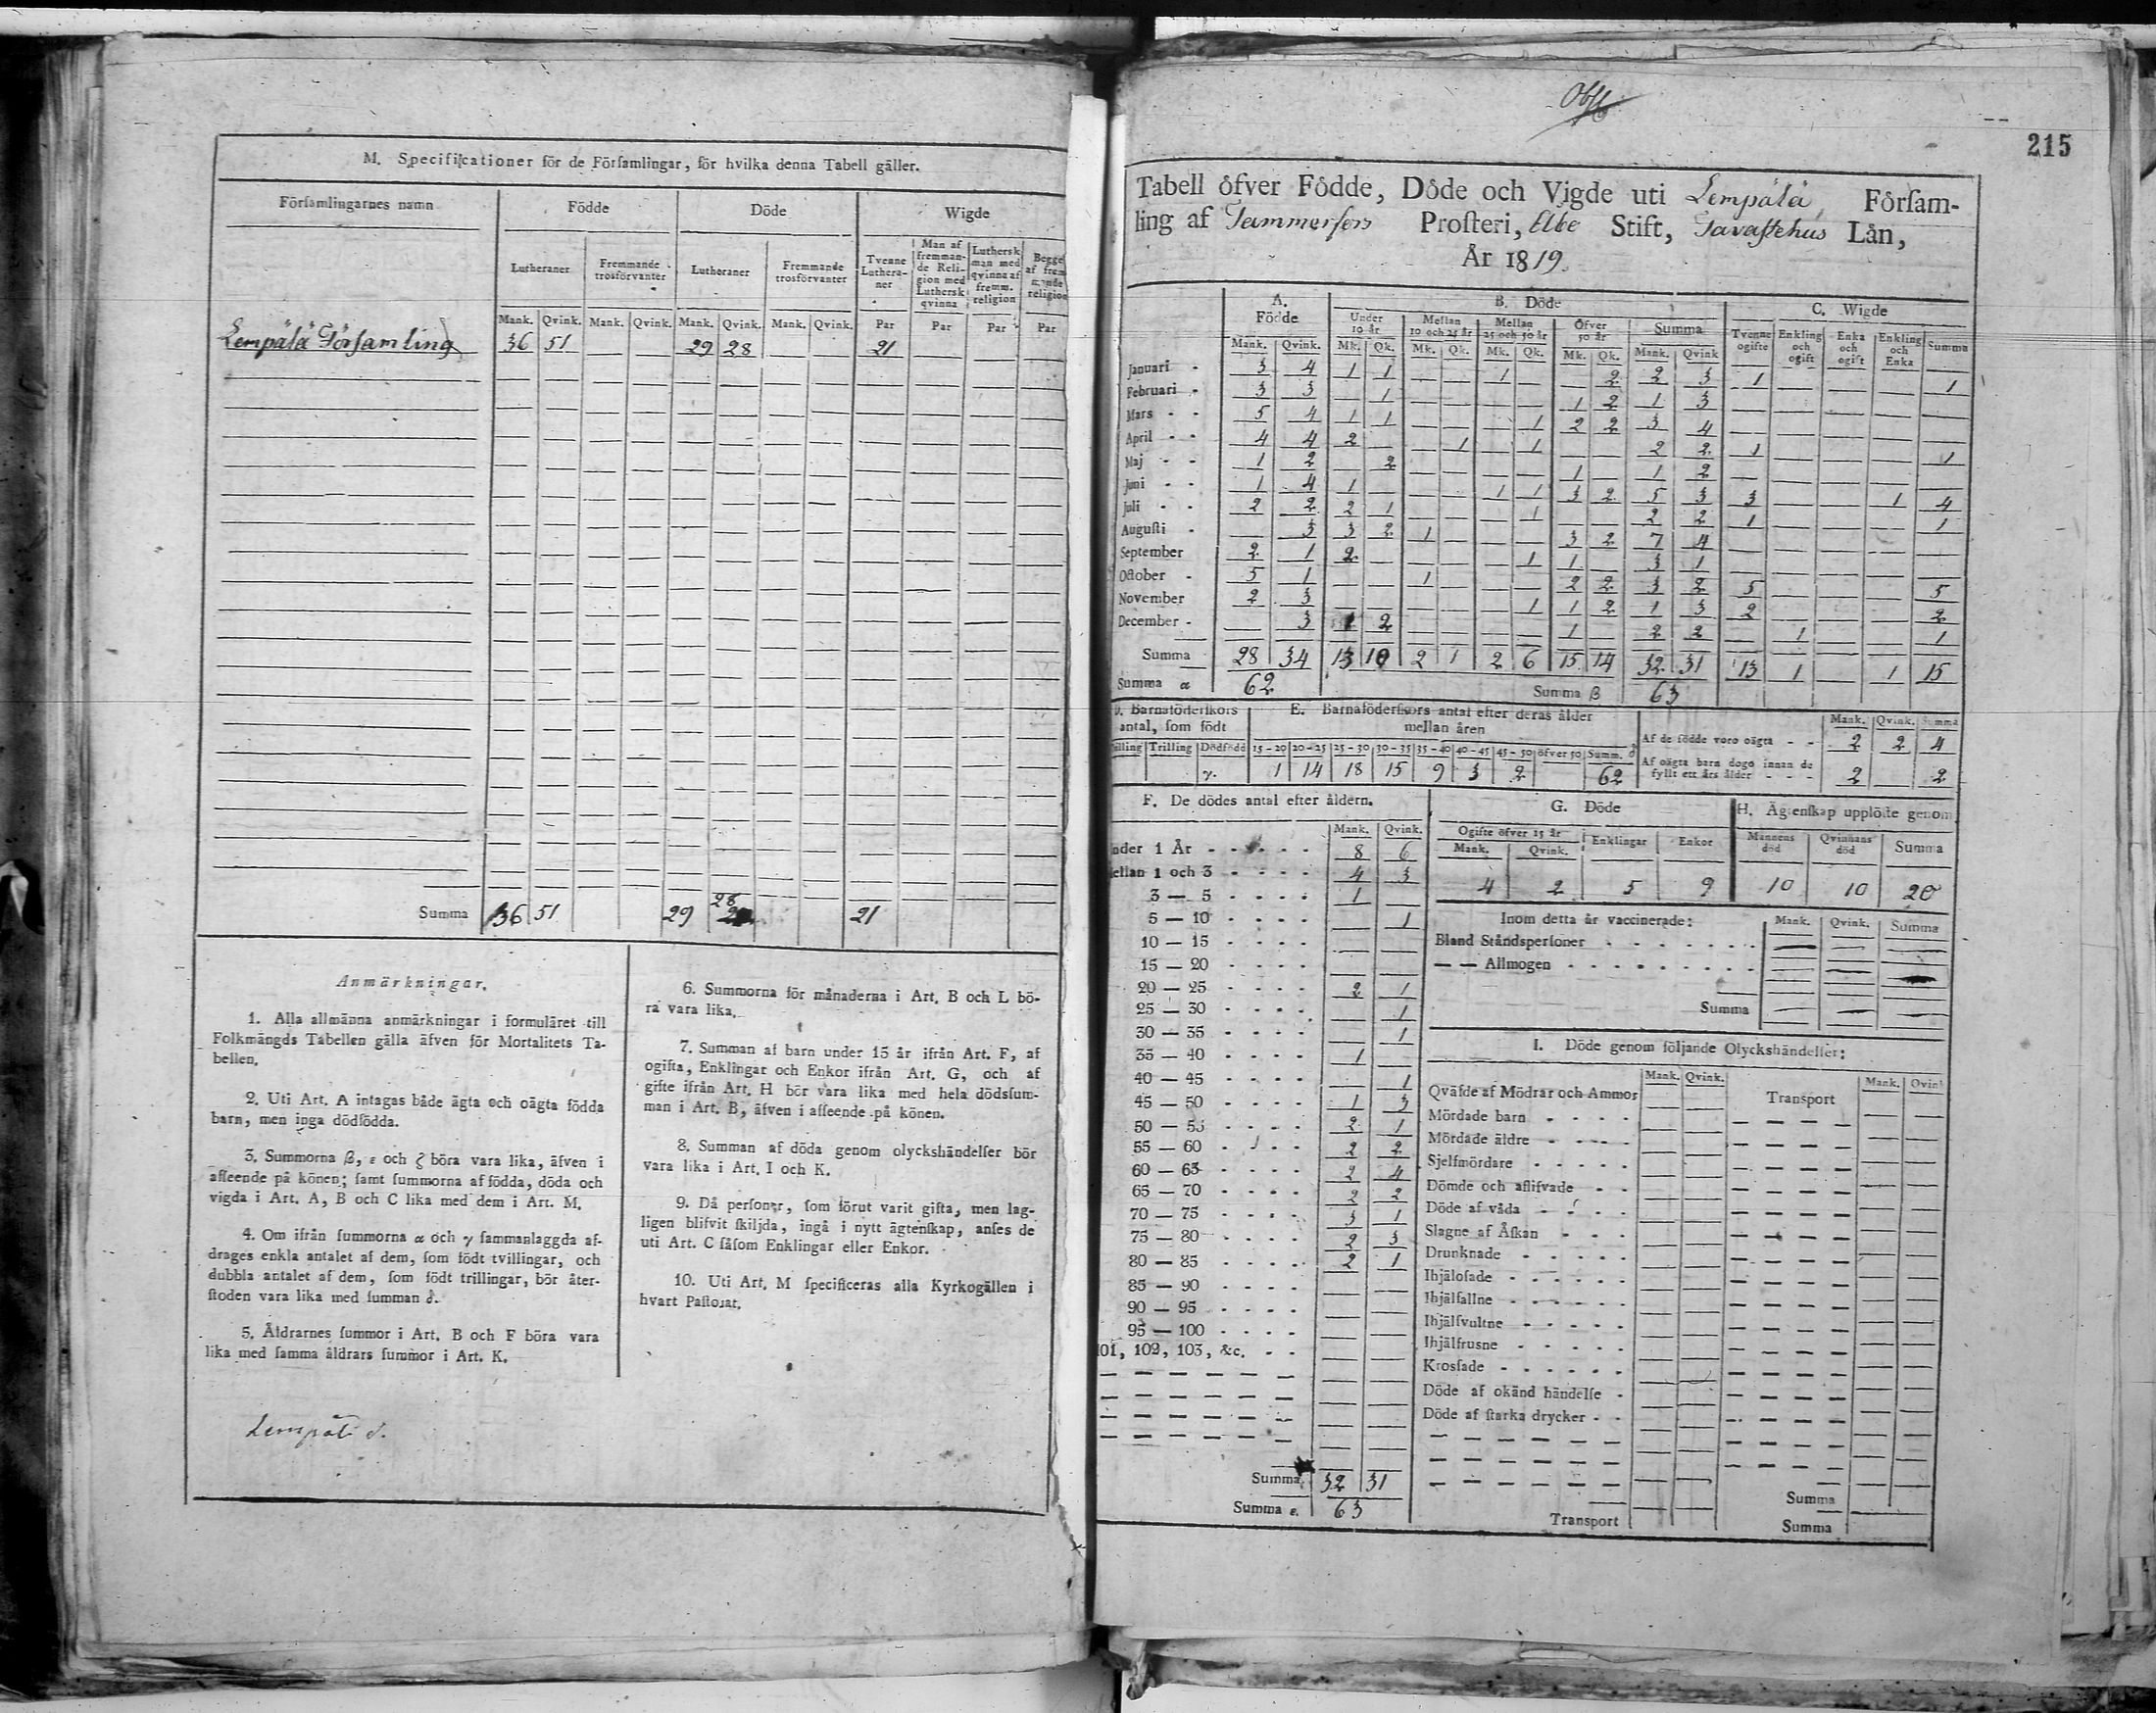 M. Specificationer för de Förſamlingar, för hvilka denna Tabell gäller.
Förſamlingarnes namn Födde Döde Wigde
Lutheraner Fremmande trosförvanter Lutheraner Fremmande trosförvanter Tvenne Lutheraner Man af fremmande Religion med Lutherſk qvinna Lutherſk man med qvinna af fremm. religion Begge af fremmande religion
Mank. Qvink. Mank. Qvink. Mank. Qvink. Mank. Qvink. Par Par Par Par
Lempälä Förſamling 36 51 29 28 21
28
Summa 36 51 29 21
Anmärkningar.
1. Alla allmänna anmärkningar i formuläret till
Folkmängds Tabellen gälla äfven för Mortalitets Ta-
bellen.
2. Uti Art. A intagas både ägta och oägta födda
barn, men inga dödfödda.
3. Summorna β, ε och ζ böra vara lika, äfven i
afſeende på könen; ſamt ſummorna af födda, döda och
vigda i Art. A, B och C lika med dem i Art. M.
4. Om ifrån ſummorna α och γ ſammanlaggda af-
drages enkla antalet af dem, ſom födt tvillingar, och
dubbla antalet af dem, ſom födt trillingar, bör åter-
ſtoden vara lika med ſumman δ.
5. Åldrarnes ſummor i Art. B och F böra vara
lika med ſamma åldrars ſummor i Art. K.
6. Summorna för månaderna i Art. B och L bö-
ra vara lika.
7. Summan af barn under 15 år ifrån Art. F, af
ogifta, Enklingar och Enkor ifrån Art. G, och af
gifte ifrån Art. H bör vara lika med hela dödsſum-
man i Art. B, äfven i afſeende på könen.
8. Summan af döda genom olyckshändelſer bör
vara lika i Art. I och K.
9. Då perſoner, ſom förut varit gifta, men lag-
ligen blifvit ſkiljda, ingå i nytt ägtenſkap, anſes de
uti Art. C ſåſom Enklingar eller Enkor.
10. Uti Art. M ſpecificeras alla Kyrkogällen i
hvart Paſtorat.
215
Tabell öfver Födde, Döde och Vigde uti Lempälä Förſam-
ling af Tammerfors Proſteri, Åbo Stift, Tavaſtehus Län,
År 1819.
A. Födde B. Döde C. Wigde
Under 10 år Mellan 10 och 25 år Mellan 25 och 50 år Öfver 50 år Summa Tvenne ogifte Enkling och ogift Enka och ogift Enkling och Enka Summa
Mank. Qvink. Mk. Qk. Mk. Qk. Mk. Qk. Mk. Qk. Mank. Qvink
Januari - 3 4 1 1 — — 1 — — 2 2 3 1 — — — 1
Februari - 3 3 — 1 — — — — 1 2 1 3 — — — — —
Mars - - 5 4 1 1 — — — 1 2 2 3 4 — — — — —
April - - 4 4 2 — — 1 — 1 — — 2 2 1 — — — 1
Maj - - 1 2 — 2 — — — — 1 — 1 2 — — — — —
Juni - - 1 4 1 — — — 1 1 3 2 5 3 3 — — 1 4
Juli - - 2 2 2 1 — — — 1 — — 2 2 1 — — — 1
Auguſti - — 3 3 2 1 — — — 3 2 7 4 — — — — —
September 2 1 2 — — — — 1 1 — 3 1 — — — — —
October - 5 1 — — 1 — — — 2 2 3 2 5 — — — 5
November 2 3 — — — — — 1 1 2 1 3 2 — — — 2
December - — 3 1 2 — — — — 1 — 2 2 — 1 — — 1
Summa 28 34 13 10 2 1 2 6 15 14 32 31 13 1 1 15
Summa α 62 Summa β 63
D. Barnaföderſkors antal, ſom födt E. Barnaföderſkors antal efter deras ålder mellan åren
Mank. Qvink. Summa
illing Trilling Dödfödd 15-20 20-25 25-30 30-35 35-40 40-45 45-50 öfver 50 Summ. δ
γ. 1 14 18 15 9 3 2 62
Af de födde voro oägta - - 2 2 4
Af oägta barn dogo innan de
fyllt ett års ålder - - - 2 2
F. De dödes antal efter åldern.
Mank. Qvink.
nder 1 År - - - - - 8 6
ellan 1 och 3 - - - - 4 3
3 — 5 - - - - 1 —
5 — 10 - - - - — 1
10 — 15 - - - - — —
15 — 20 - - - - — —
20 — 25 - - - - 2 1
25 — 30 - - - - — 1
30 — 35 - - - - — 1
35 — 40 - - - - 1 —
40 — 45 - - - - — 1
45 — 50 - - - - 1 3
50 — 55 - - - - 2 1
55 — 60 - - - - 2 2
60 — 65 - - - - 2 4
65 — 70 - - - - 2 2
70 — 75 - - - - 3 1
75 — 80 - - - - 2 3
80 — 85 - - - - 2 1
85 — 90 - - - - — —
90 — 95 - - - - — —
95 — 100 - - - - — —
01, 102, 103, &c. - - — —
Summa 32 31
Summa ε. 63
G. Döde
Ogifte öfver 15 år Enklingar Enkor
Mank. Qvink.
4 2 5 9
H. Ägtenſkap upplöſte genom
Mannens död Qvinnans död Summa
10 10 20
Inom detta år vaccinerade: Mank. Qvink. Summa
Bland Ståndsperſoner - - - - - - -
— — Allmogen - - - - - - - - -
Summa — — —
I. Döde genom följande Olyckshändelſer:
Mank. Qvink. Mank. Qvink
Qväfde af Mödrar och Ammor Transport
Mördade barn - - - -
Mördade äldre - - - -
Sjelfmördare - - - - -
Dömde och aflifvade - -
Döde af våda - - - -
Slagne af Åſkan - - -
Drunknade - - - - -
Ihjäloſade - - - - - -
Ihjälfallne - - - - - -
Ihjälſvultne - - - - -
Ihjälfrusne - - - - -
Krosſade - - - - - -
Döde af okänd händelſe -
Döde af ſtarka drycker - -
Summa
Transport Summa